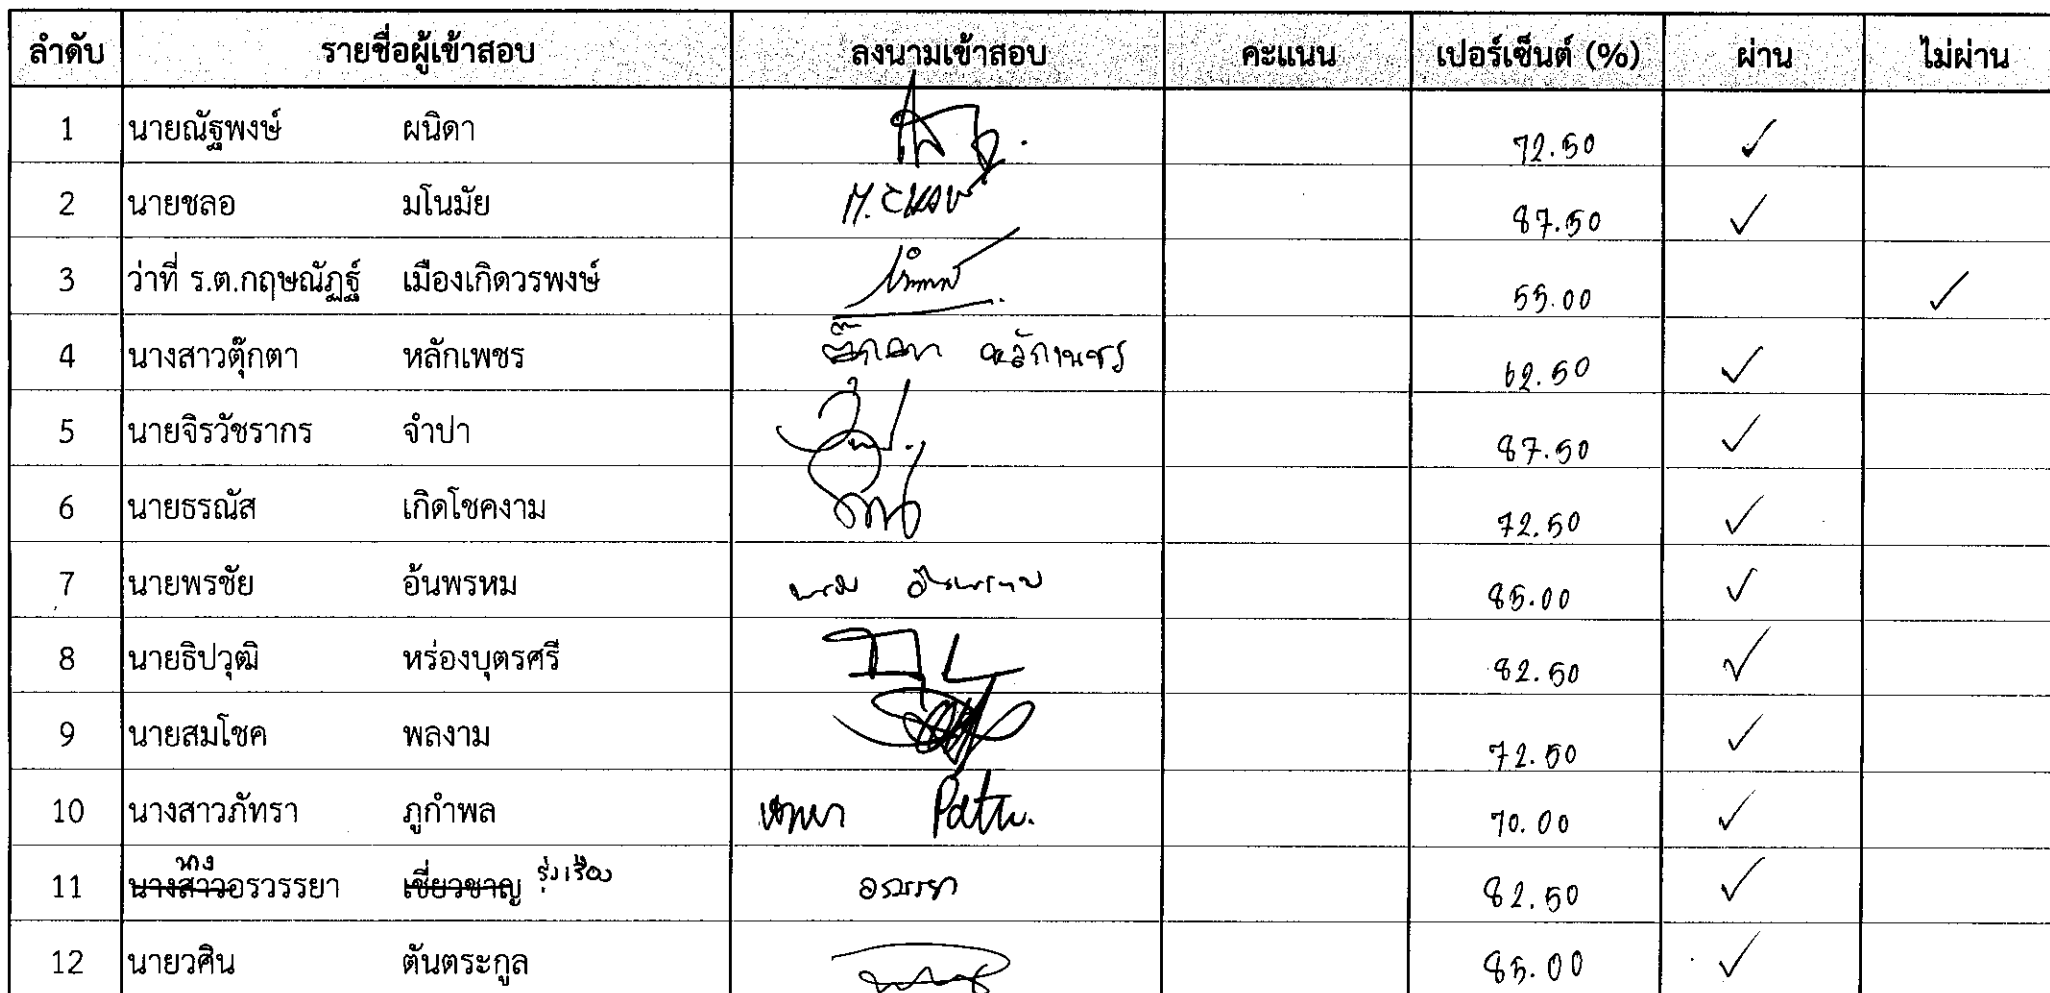 ลำดับ รายชื่อผู้เข้าสอบ ลงนามเข้าสอบ คะแนน เปอร์เซ็นต์ (%) ผ่าน ไม่ผ่าน
1 นายณัฐพงษ์ ผนิดา 72.50 ✓
2 นายชลอ มโนมัย 87.50 ✓
3 ว่าที่ ร.ต.กฤษณัฏฐ์ เมืองเกิดวรพงษ์ 55.00 ✓
4 นางสาวตุ๊กตา หลักเพชร ตุ๊กตา หลักเพชร 62.50 ✓
5 นายจิรวัชรากร จำปา 87.50 ✓
6 นายธรณัส เกิดโชคงาม 72.50 ✓
7 นายพรชัย อ้นพรหม 85.00 ✓
8 นายธิปวุฒิ หร่องบุตรศรี 82.50 ✓
9 นายสมโชค พลงาม 72.50 ✓
10 นางสาวภัทรา ภูกำพล 70.00 ✓
นาง รุ่งเรือง
11 นางสาวอรวรรยา เชี่ยวชาญ อรวรรยา 82.50 ✓
12 นายวศิน ตันตระกูล 85.00 ✓